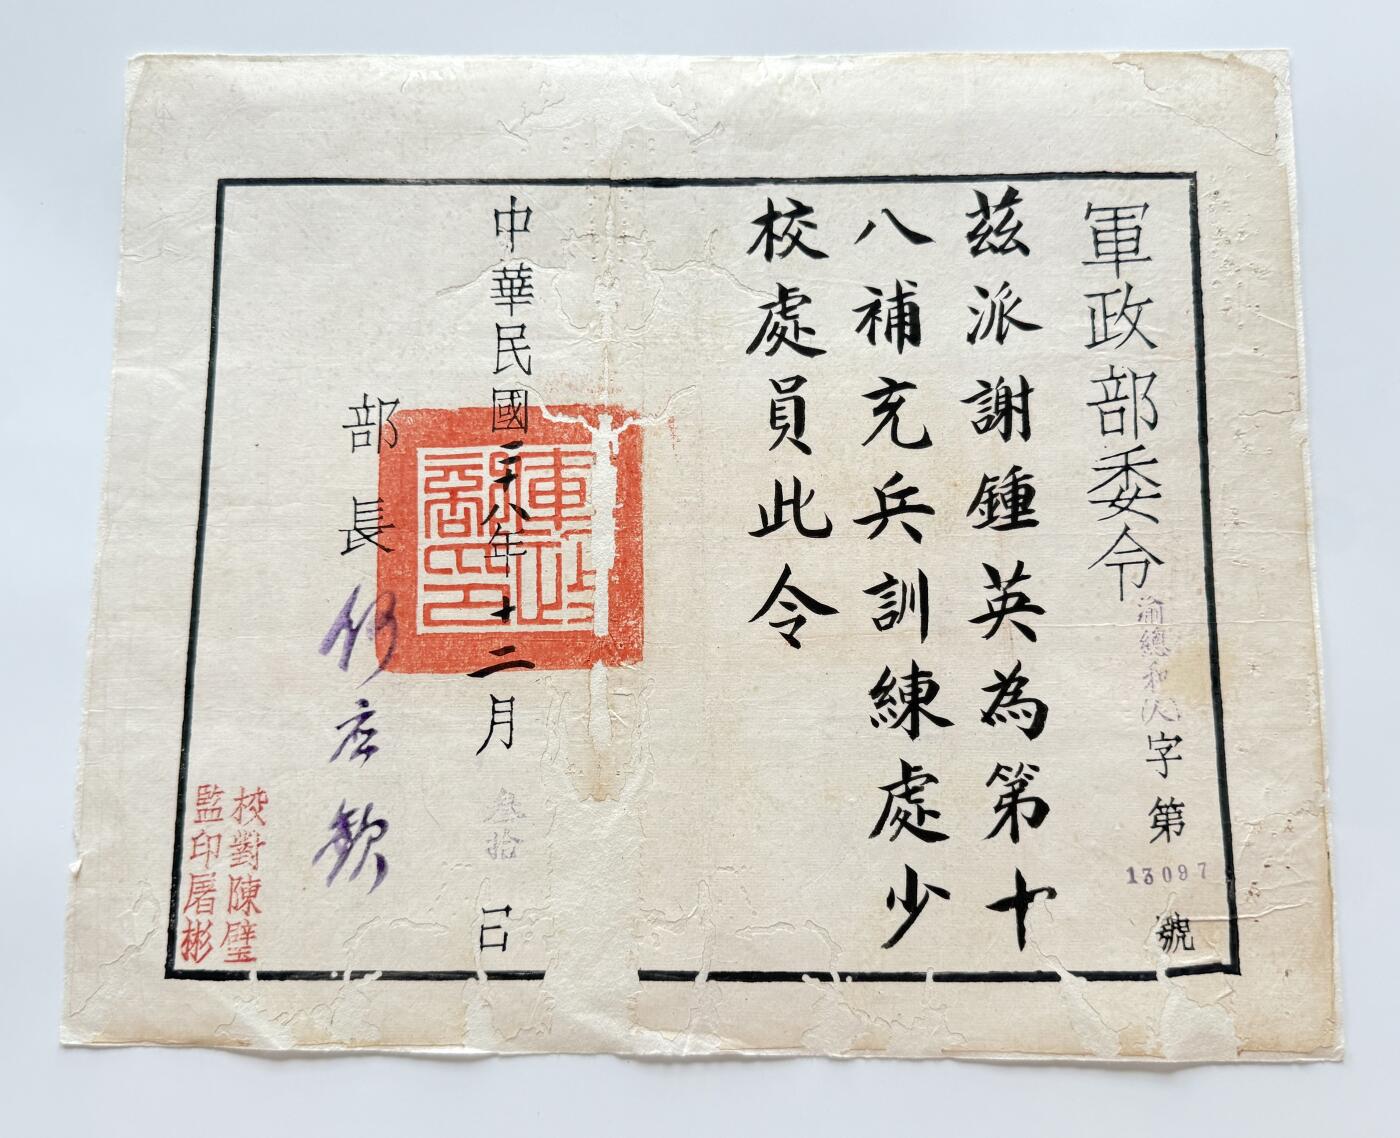 軍政部委令
渝總和(人)字第13097號
茲派謝鍾英為第十
八補充兵訓練處少
校處員此令
中華民國二十八年十二月叁拾日
軍政部印
部長何应欽
校對陳璧
監印屠彬